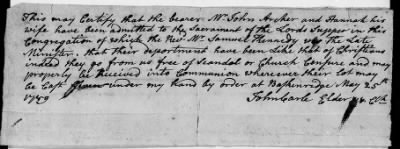 This may Certify that the bearer Mr John Archer and Hannah his
wife have been admitted to the Sacrament of the Lords Supper in this
Congregation of which the Revd Mr Samuel Kennedy was the Late
Minister. that their deportment have been Like that of Christians
indeed they go from us free of Scandal or Church Censure and may
properly be Received into Communion wherever their Lot may
be Cast under my hand by order at Baskenridge May 25th
1789
John Carle Elder